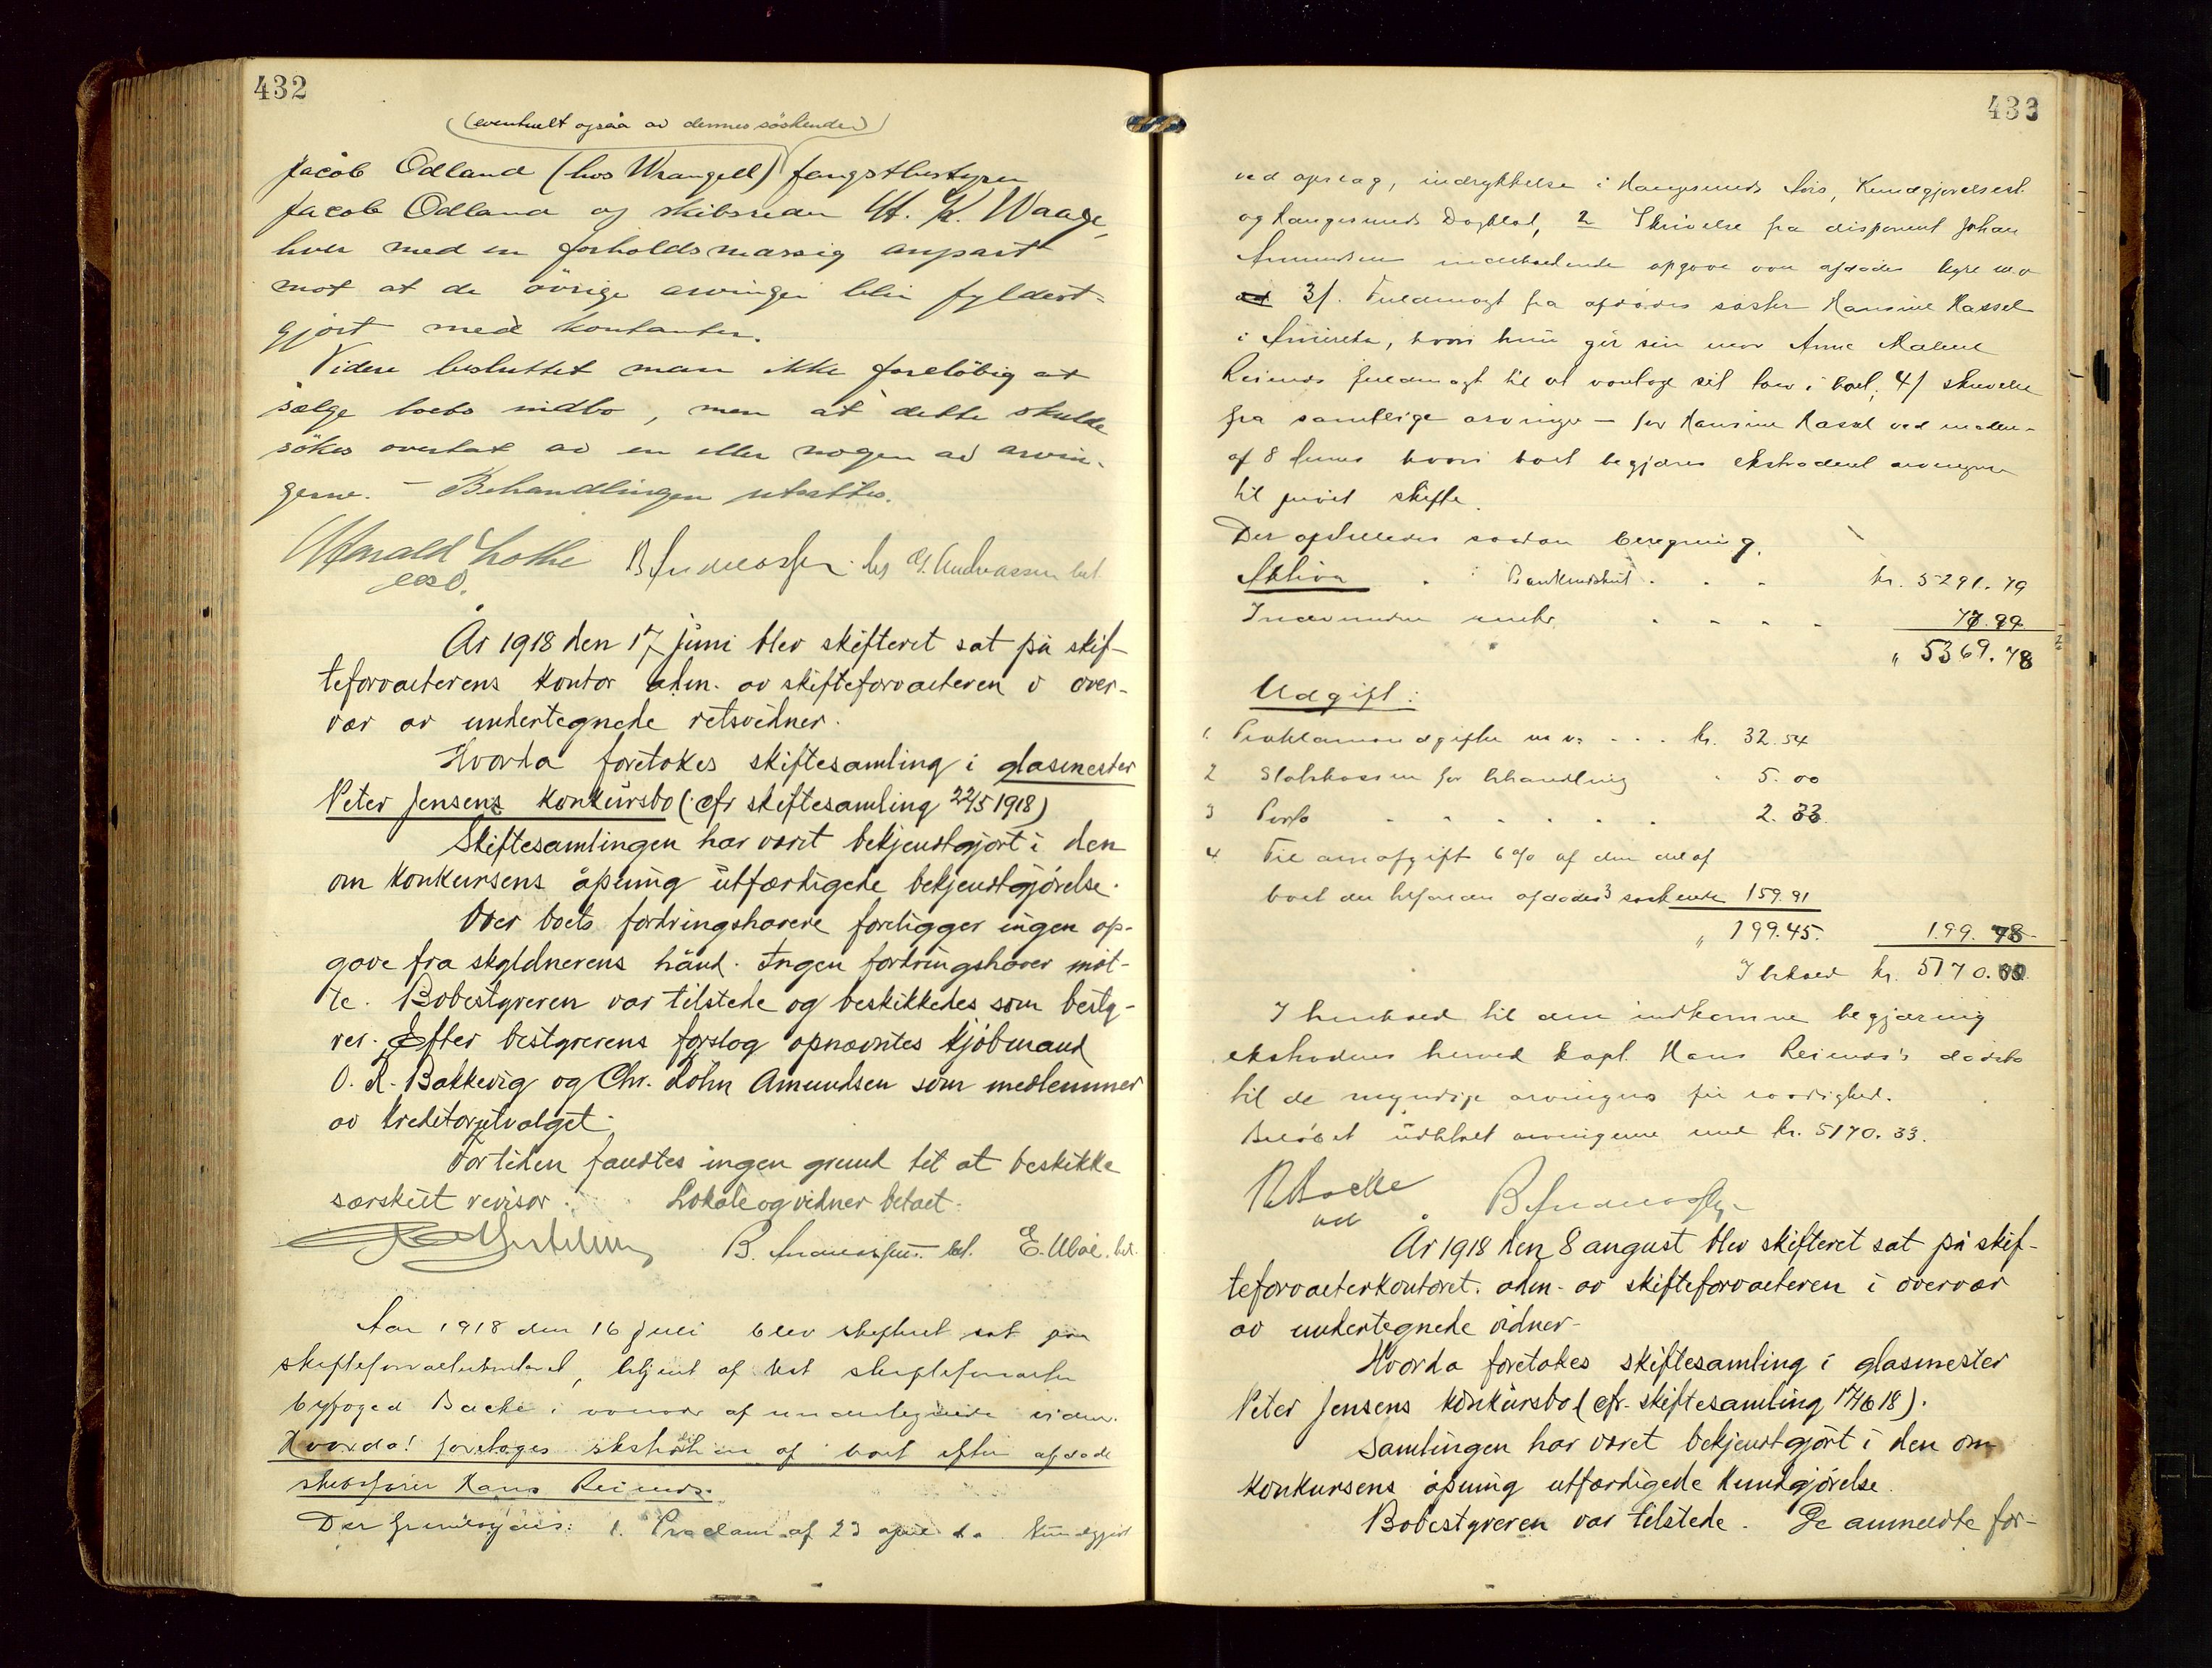 432
(eventuelt også av dennes söskender)
Jacob Odland (hos Wrangell) fangstbestyrer
Jacob Odland og skibsreder H. K. Waage,
hver med en forholdsmæssig anpart
mot at de övrige arvinger blir fyldest-
gjort med kontanter.
Videre besluttet man ikke foreløbig at
sælge boets indbo, men at dette skulde
sökes overtat av en eller nogen av arvin-
gerne. – Behandlingen utsattes.
Harald Lothe B. Andreassen. bet G. Andreassen bet
År 1918 den 17 juni blev skifteret sat på skif-
teforvalterens kontor adm. av skifteforvalteren i over-
vær av undertegnede retsvidner.
Hvorda foretokes skiftesamling i glasmester
Peter Jensens konkursbo (cfr skiftesamling 22/5 1918)
Skiftesamlingen har været bekjendtgjort i den
om konkursens åpning utfærdigede bekjendtgjörelse.
Over boets fordringshavere foreligger ingen op-
gave fra skyldnerens hånd. Ingen fordringshaver möt-
te. Bobestyreren var tilstede og beskikkedes som besty-
rer. Efter bestyrerens forslag opnævntes kjöbmand
O. R. Bakkevig og Chr. Lohn Amundsen som medlemmer
av kreditorutvalget.
For tiden fandtes ingen grund til at beskikke
særskilt revisor. Lokale og vidner betalt.
B. Andreassen. bet. E. Uboe. bet.
Aar 1918 den 16 juli blev skifteret sat paa
skifteforvalterkontoret, betjent af kst skifteforvalter
byfoged Backe i overvær af undertegnede vidner.
Hvorda! foretages ekstradition af boet efter afdøde
skibsfører Hans Reimers.
Der fremlagdes: 1. Proclam af 23 april d.a. kundgjort
433
ved opslag, indrykkelse i Haugesunds Avis, Kundgjørelsest.
og Haugesunds Dagblad, 2 Skrivelse fra disponent Johan
Amundsen indeholdende opgave over afdødes hyre m.v
3/. Fuldmagt fra afdødes søster Hansine Hassel
i Amerika, hvori hun gir sin mor Anne Malene
Reimers fuldmagt til at vareta sit tarv i boet, 4/ skrivelse
fra samtlige arvinger – for Hansine Hassel ved moderen
af 8 hvori boet begjæres ekstraderet arvingerne
til privat skifte.
Der opstilledes saadan beregning.
Aktiva . : Bankindskud . . . kr. 5291.79
Indevundne renter . . . . 77.99
" 5369.78
Udgift:
1. Proklamaudgifter m v. . . . kr. 32.54
2 Statskassen for behandling " 5.00
3 Porto . . . . . . 2.33
4 Til arveafgift 6% af den del af
boet der tilfalder afdødes 3 søskende 159.91
" 199.45. 199.45
I behold kr. 5170.33
I henhold til den indkomne begjæring
ekstraderes herved kapt. Hans Reimers's dødsbo
til de myndige arvingers fri raadighed.
Beløbet udbetalt arvingerne med kr. 5170.33.
Backe B. Andreassen
År 1918 den 8 august blev skifteret sat på skif-
teforvalterkontoret. adm. av skifteforvalteren i overvær
av undertegnede vidner.
Hvorda foretokes skiftesamling i glasmester
Peter Jensens konkursbo (cfr. skiftesamling 17/6 18).
Samlingen har været bekjendtgjort i den om
konkursens åpning utfærdigede kundgjörelse.
Bobestyreren var tilstede. De anmeldte for-